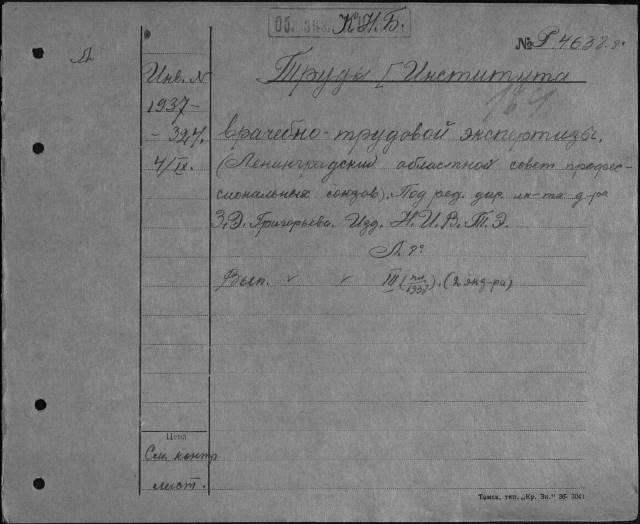 К.Н.Б.
№ Р.4638.г.
Л
Труды [Института
164
Инв. №
1937-
-327.
4/IX.
врачебно-трудовой экспертизы.
(Ленинградский областной совет профес-
сиональных союзов). Под ред. дир. ин-та д-ра
З.Э. Григорьева. Изд. Н.И.В.Т.Э.
Л 8°
Вып. ✓ ✓ III (1937). (2 экз-ра)
Цена
См. контр
лист.
Томск, тип. „Кр. Зн." Зб-3041